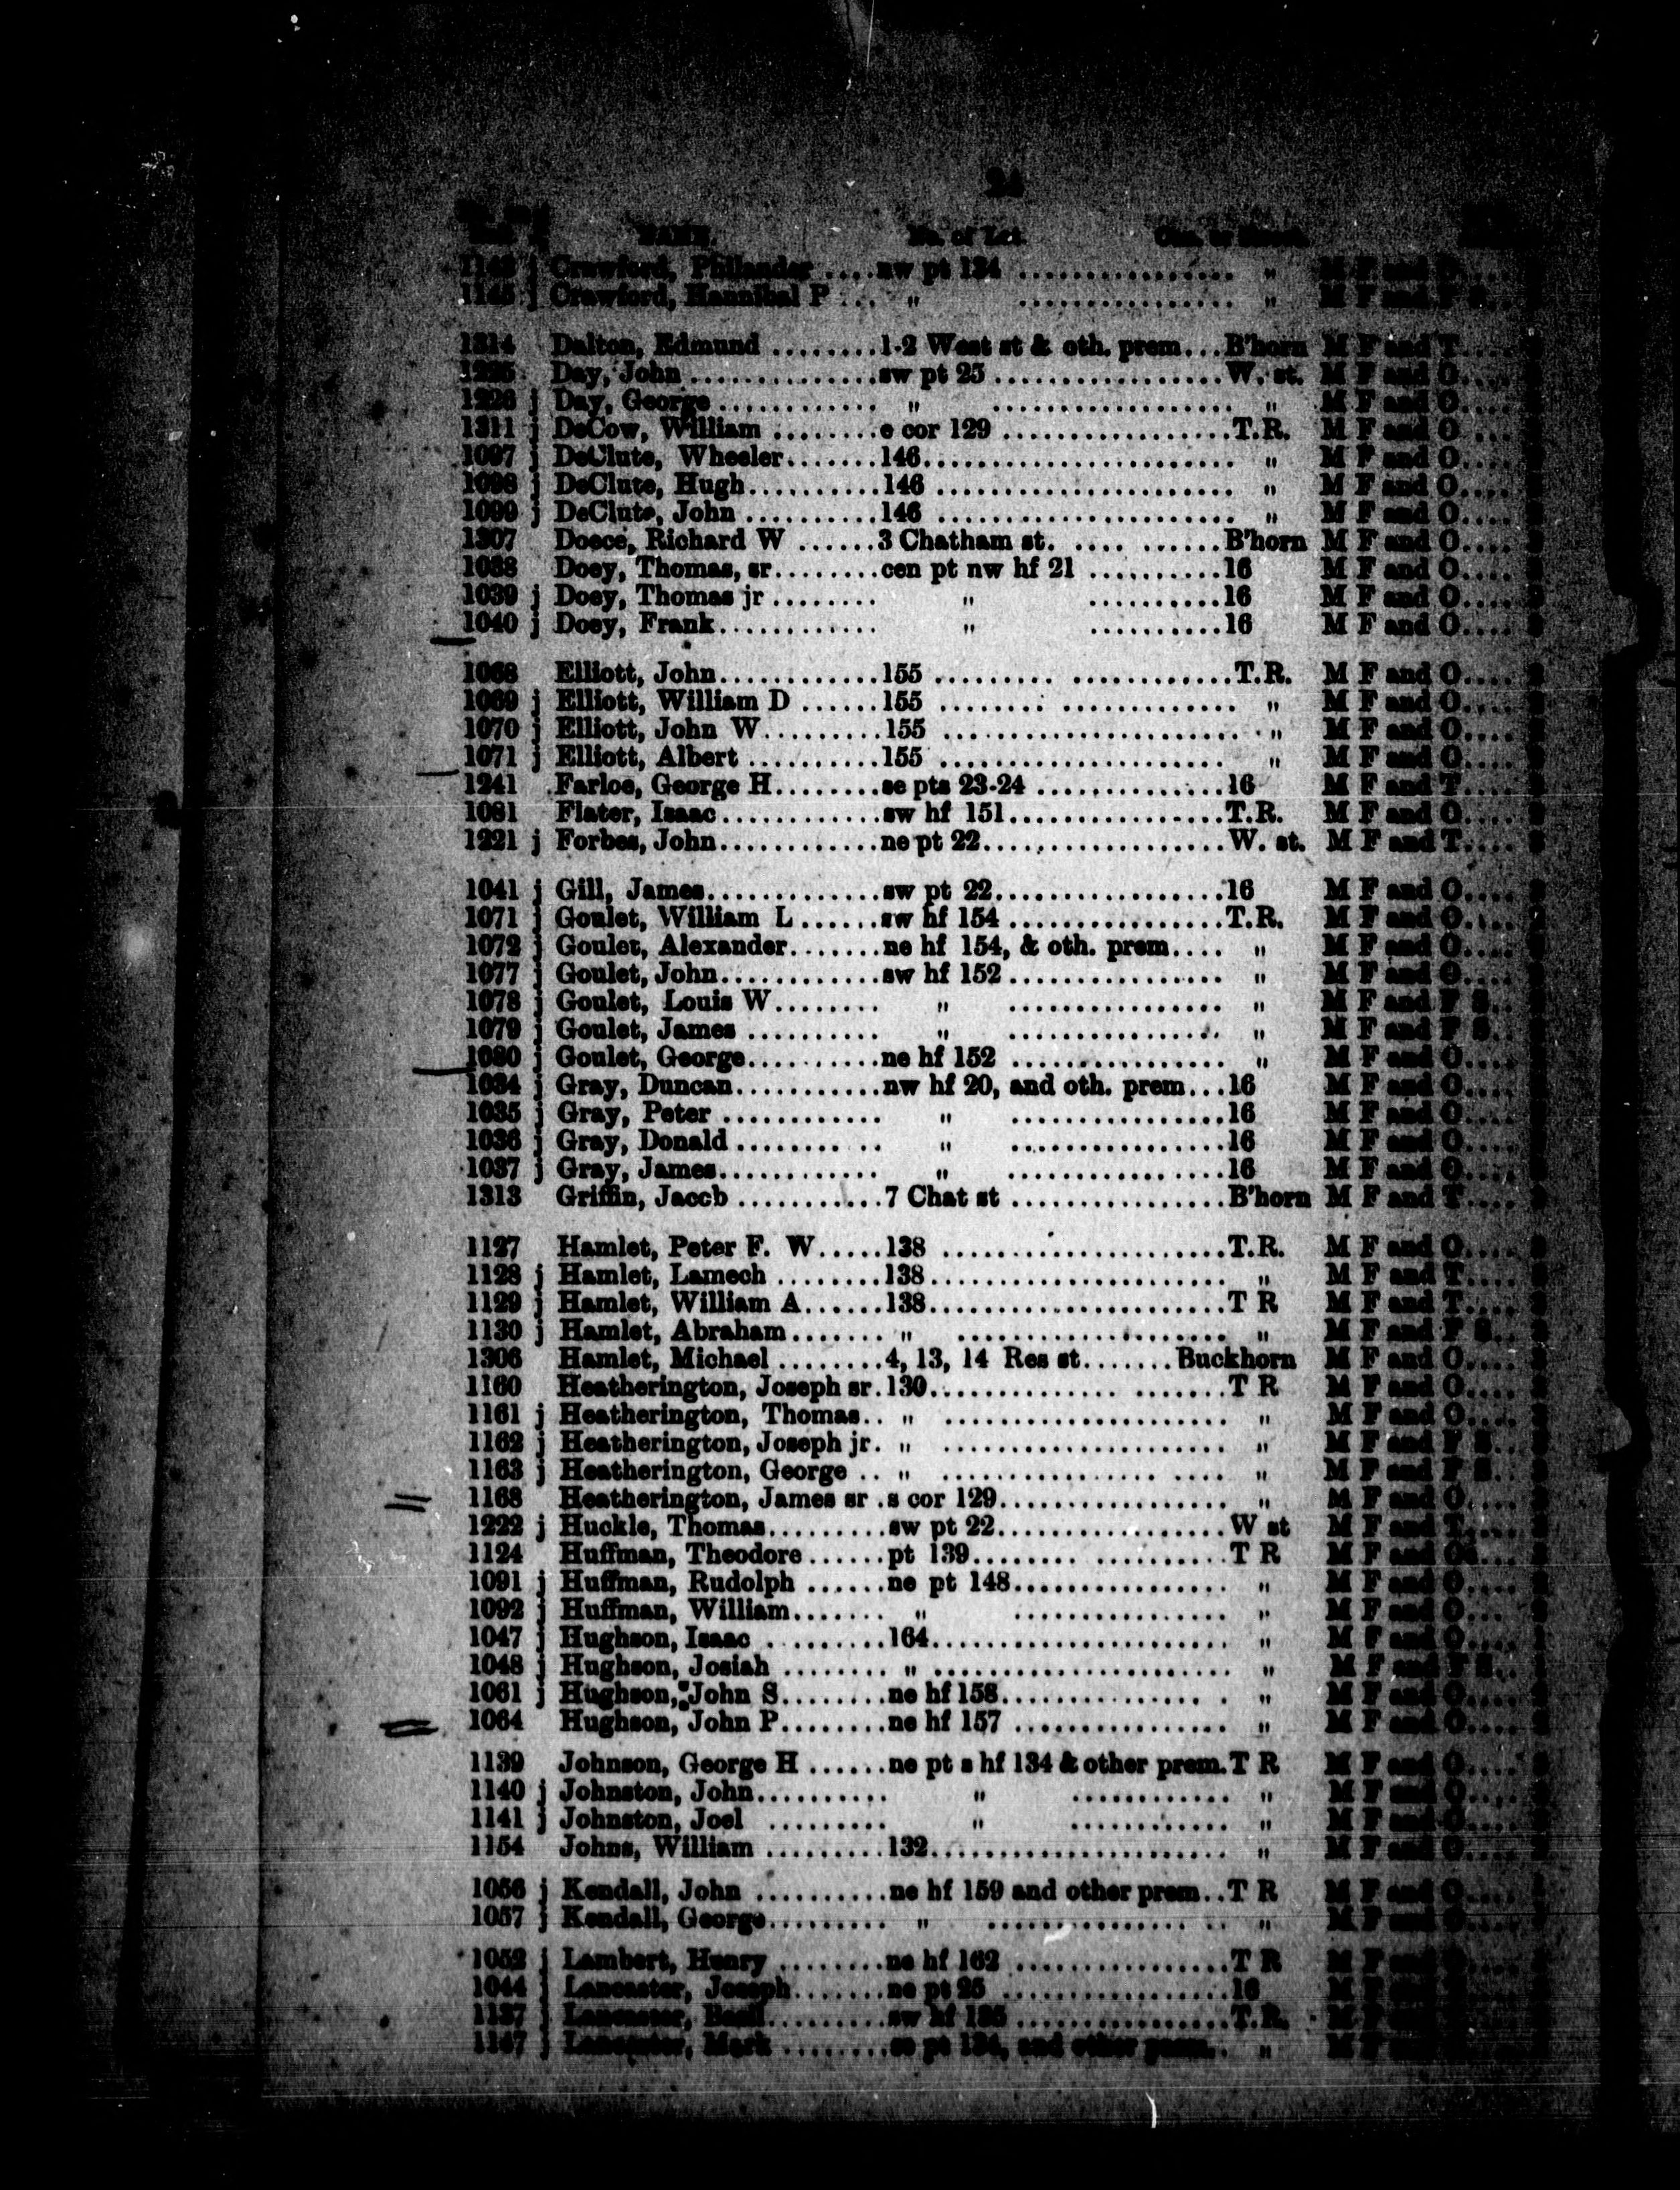 24
NAME. No. of Lot. Con. or Street.
j Crawford, Philander .... nw pt 134 ................ " M F and O....
j Crawford, Hannibal P ... " ................ " M F and F S..
1314 Dalton, Edmund ........1-2 West st & oth. prem...B'horn M F and T....
Day, John..............sw pt 25 .................W. st. M F and O....
1226 j Day, George............ " .................. " M F and O....
1311 j DeCow, William ........e cor 129 .................T.R. M F and O....
1097 j DeClute, Wheeler.......146....................... " M F and O....
1098 j DeClute, Hugh..........146 ...................... " M F and O....
1099 j DeClute, John ..........146 ...................... " M F and O....
1307 Doece, Richard W ......3 Chatham st. .... ......B'horn M F and O....
1038 Doey, Thomas, sr........cen pt nw hf 21 ..........16 M F and O....
1039 j Doey, Thomas jr ........ " ..........16 M F and O....
1040 j Doey, Frank............ " ..........16 M F and O....
1068 Elliott, John............155 ......... ............T.R. M F and O....
1069 j Elliott, William D ......155 ........ ............. " M F and O....
1070 j Elliott, John W.........155 ...................... " M F and O....
1071 j Elliott, Albert ..........155 ..................... " M F and O....
1241 Farloe, George H........se pts 23-24 ..............16 M F and T....
1081 Flater, Isaac............sw hf 151................T.R. M F and O....
1221 j Forbes, John............ne pt 22..................W. st. M F and T....
1041 j Gill, James.............sw pt 22.................16 M F and O....
1071 j Goulet, William L ......sw hf 154 ................T.R. M F and O....
1072 j Goulet, Alexander.......ne hf 154, & oth. prem.... " M F and O....
1077 j Goulet, John............sw hf 152 ................ " M F and O....
1078 j Goulet, Louis W........ " ................ " M F and F S..
1079 j Goulet, James .......... " ................ " M F and F S..
1080 j Goulet, George..........ne hf 152 ................ " M F and O....
1034 j Gray, Duncan...........nw hf 20, and oth. prem...16 M F and O....
1035 j Gray, Peter ............ " ................16 M F and O....
1036 j Gray, Donald ........ .. " ................16 M F and O....
1037 j Gray, James............ " ................16 M F and O....
1313 Griffin, Jaccb ...........7 Chat st ................B'horn M F and T....
1127 Hamlet, Peter F. W.....138 .....................T.R. M F and O....
1128 j Hamlet, Lamech ........138...................... " M F and T....
1129 j Hamlet, William A......138......................T R M F and T....
1130 j Hamlet, Abraham....... " .................... " M F and F S..
1306 Hamlet, Michael ........4, 13, 14 Res st.......Buckhorn M F and O....
1160 Heatherington, Joseph sr.130.............. .......T R M F and O....
1161 j Heatherington, Thomas.. " ..................... " M F and O....
1162 j Heatherington, Joseph jr. " ..................... " M F and F S..
1163 j Heatherington, George .. " ................ .... " M F and F S..
1168 Heatherington, James sr .s cor 129................. " M F and O....
1222 j Huckle, Thomas.........sw pt 22.................W st M F and T....
1124 Huffman, Theodore......pt 139........ ..........T R M F and O....
1091 j Huffman, Rudolph ......ne pt 148................ " M F and O....
1092 j Huffman, William....... " ................ " M F and O....
1047 j Hughson, Isaac .........164...................... " M F and O....
1048 j Hughson, Josiah ........ " ...................... " M F and F S..
1061 j Hughson, John S........ne hf 158............... . " M F and O....
1064 Hughson, John P........ne hf 157 ................ " M F and O....
1139 Johnson, George H ......ne pt s hf 134 & other prem.T R M F and O....
1140 j Johnston, John.......... " ............ " M F and O....
1141 j Johnston, Joel ......... " ............ " M F and O....
1154 Johns, William .........132...................... " M F and O....
1056 j Kendall, John ..........ne hf 159 and other prem..T R M F and O....
1057 j Kendall, George......... " ............... .. " M F and O....
1052 j Lambert, Henry ........ne hf 162 ................T R M F
1044 j Lancaster, Joseph.......ne pt 25 .................16 M F
1137 j Lancaster, .........sw hf 135 ................T.R. M F
1147 j Lancaster, Mark ........se pt 134, and other prem.. " M F